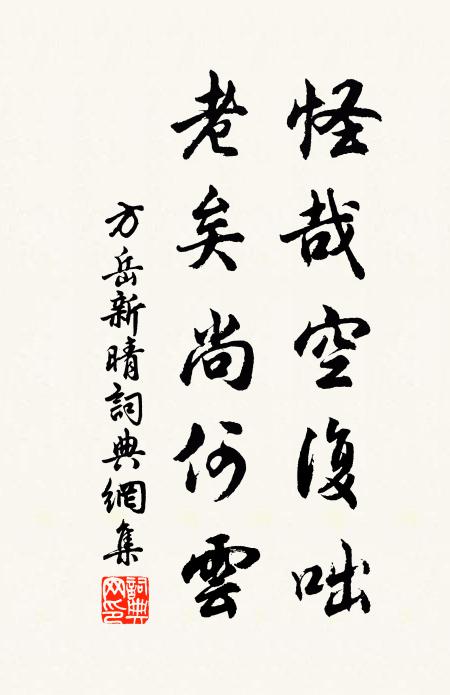 怪哉空復咄
老矣尚何雲
方岳新晴詞典網集
詞典網印